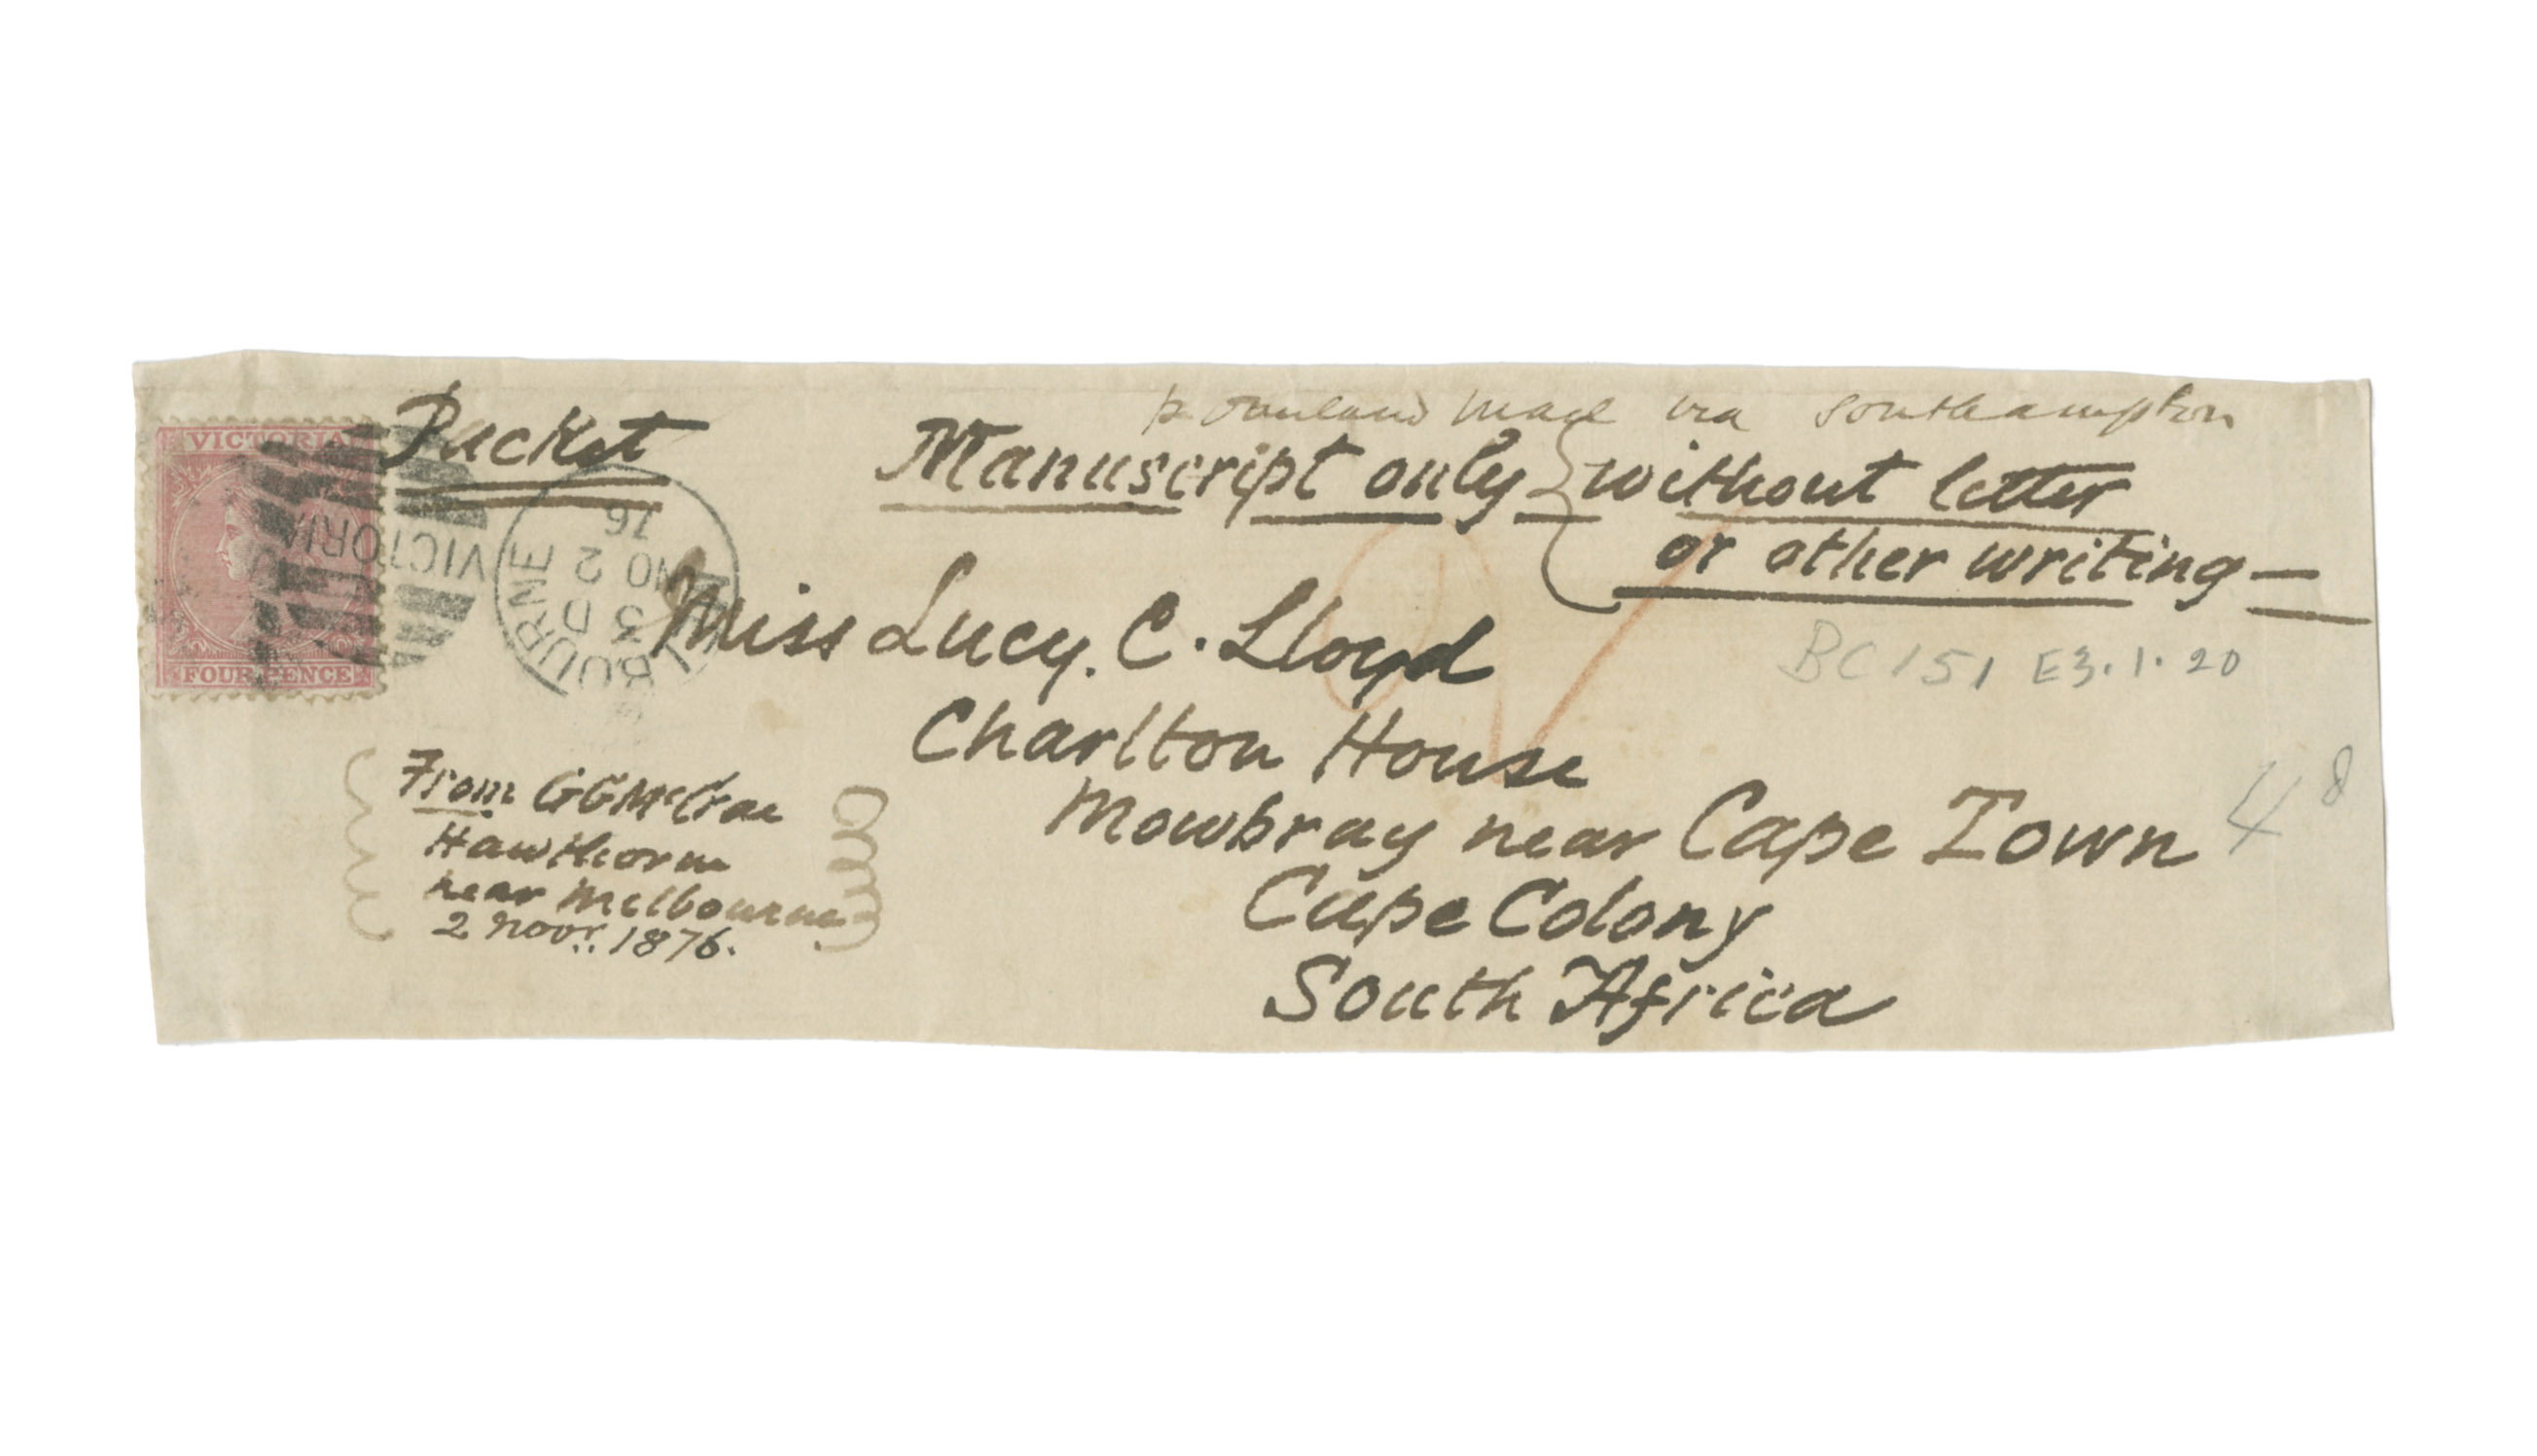 p overland mail via Southampton
Packet
Manuscript only
without letter
or other writing—
VICTORIA
FOUR PENCE
VICTORIA
MELBOURNE
3 D
NO 2
76
Miss Lucy. C. Lloyd
Charlton House
Mowbray near Cape Town
Cape Colony
South Africa
BC 151 E3.1.20
From GGMcCrae
Hawthorne
near Melbourne
2 Novr. 1876.